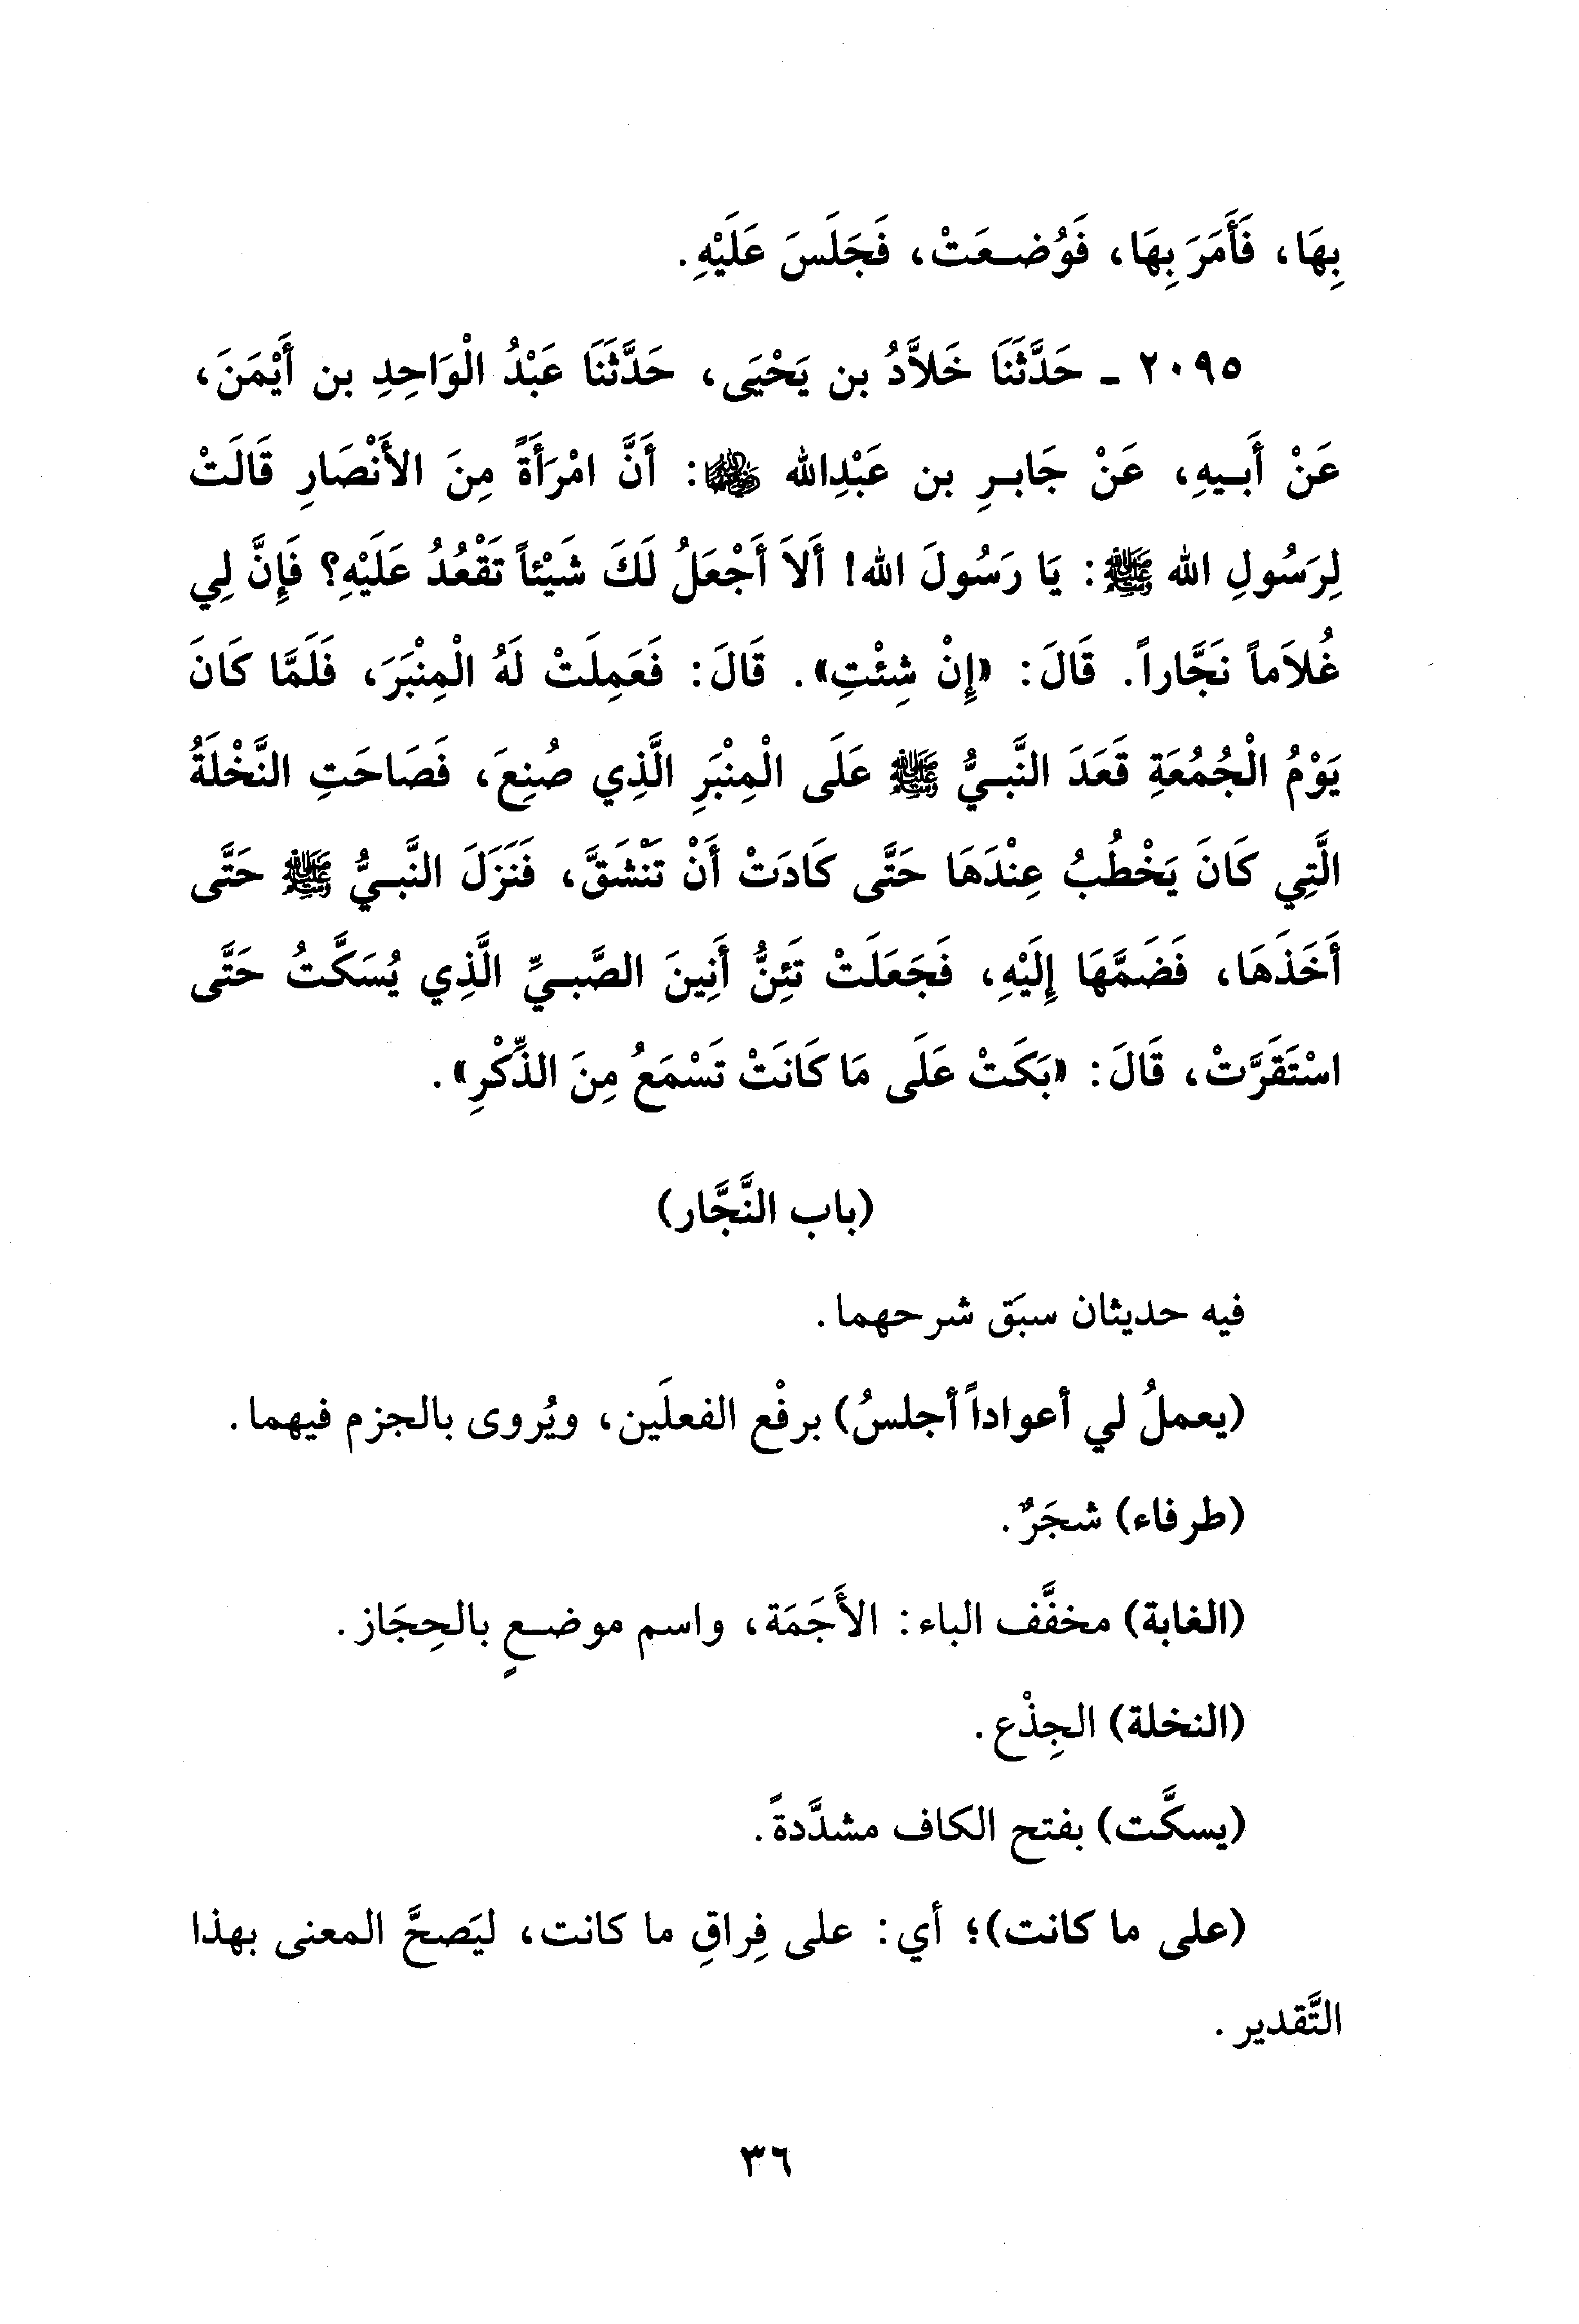 بِهَا، فَأَمَرَ بِهَا، فَوُضِعَتْ، فَجَلَسَ عَلَيْهِ.
٢٠٩٥ - حَدَّثَنَا خَلاَّدُ بن يَحْيَى، حَدَّثَنَا عَبْدُ الْوَاحِدِ بن أَيْمَنَ،
عَنْ أَبيهِ، عَنْ جَابرِ بن عَبْدِالله ﵄: أَنَّ امْرَأَةً مِنَ الأَنْصَارِ قَالَتْ
لِرَسُولِ الله ﷺ: يَا رَسُولَ الله! أَلاَ أَجْعَلُ لَكَ شَيْئاً تَقْعُدُ عَلَيْهِ؟ فَإِنَّ لِي
غُلاَماً نَجَّاراً. قَالَ: «إِنْ شِئْتِ». قَالَ: فَعَمِلَتْ لَهُ الْمِنْبَرَ، فَلَمَّا كَانَ
يَوْمُ الْجُمُعَةِ قَعَدَ النَّبيُّ ﷺ عَلَى الْمِنْبَرِ الَّذِي صُنِعَ، فَصَاحَتِ النَّخْلَةُ
الَّتِي كَانَ يَخْطُبُ عِنْدَهَا حَتَّى كَادَتْ أَنْ تَنْشَقَّ، فَنَزَلَ النَّبيُّ ﷺ حَتَّى
أَخَذَهَا، فَضَمَّهَا إِلَيْهِ، فَجَعَلَتْ تَئِنُّ أَنِينَ الصَّبيِّ الَّذِي يُسَكَّتُ حَتَّى
اسْتَقَرَّتْ، قَالَ: «بَكَتْ عَلَى مَا كَانَتْ تَسْمَعُ مِنَ الذِّكْرِ».
(باب النَّجَّار)
فيه حديثان سبَق شرحهما.
(يعملُ لي أعواداً أجلسُ) برفْع الفعلَين، ويُروى بالجزم فيهما.
(طرفاء) شجَرٌ.
(الغابة) مخفَّف الباء: الأَجَمَة، واسم موضعٍ بالحِجَاز.
(النخلة) الجِذْع.
(يسكَّت) بفتح الكاف مشدَّدةً.
(على ما كانت)؛ أي: على فِراقِ ما كانت، ليَصحَّ المعنى بهذا
التَّقدير.
٣٦